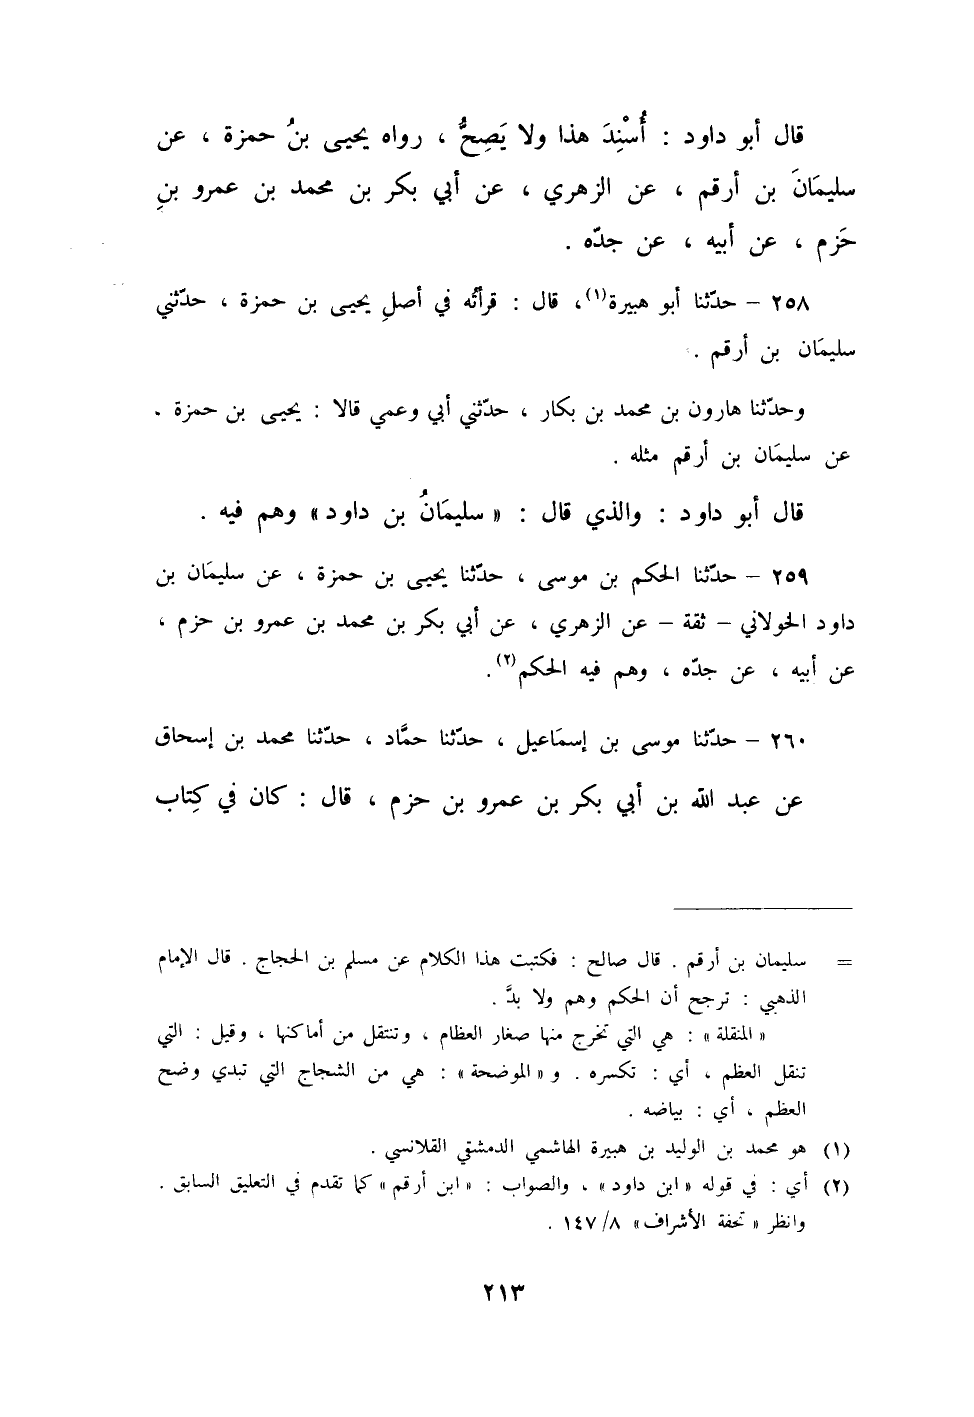 قال أبو داود : أُسْنِدَ هذا ولا يَصِحُّ ، رواه يحيى بنُ حمزة ، عن
سليمَانَ بن أرقم ، عن الزهري ، عن أبي بكر بن محمد بن عمرو بنِ
حَزم ، عن أبيه ، عن جدّه .
٢٥٨ – حدّثنا أبو هبيرة(١)، قال : قرأتُه في أصلِ يحيى بن حمزة ، حدّثني
سليمَان بن أرقم .
وحدّثنا هارون بن محمد بن بكار ، حدّثني أبي وعمي قالا : يحيى بن حمزة .
عن سليمَان بن أرقم مثله .
قال أبو داود : والذي قال : « سليمَانُ بن داود » وهم فيه .
٢٥٩ – حدّثنا الحكم بن موسى ، حدّثنا يحيى بن حمزة ، عن سليمَان بن
داود الخولاني – ثقة – عن الزهري ، عن أبي بكر بن محمد بن عمرو بن حزم ،
عن أبيه ، عن جدّه ، وهم فيه الحكم(٢).
٢٦٠ – حدّثنا موسى بن إسمَاعيل ، حدّثنا حمَّاد ، حدّثنا محمد بن إسحاق
عن عبد الله بن أبي بكر بن عمرو بن حزم ، قال : كان في كِتاب
= سليمان بن أرقم . قال صالح : فكتبت هذا الكلام عن مسلم بن الحجاج . قال الإمام
الذهبي : ترجح أن الحكم وهم ولا بدَّ .
« المنقلة » : هي التي تخرج منها صغار العظام ، وتنتقل من أماكنها ، وقيل : التي
تنقل العظم ، أي : تكسره . و « الموضحة » : هي من الشجاج التي تبدي وضح
العظم ، أي : بياضه .
(١) هو محمد بن الوليد بن هبيرة الهاشمي الدمشقي القلانسي .
(٢) أي : في قوله « ابن داود » ، والصواب : « ابن أرقم » كما تقدم في التعليق السابق .
وانظر « تحفة الأشراف » ٨/ ١٤٧ .
٢١٣